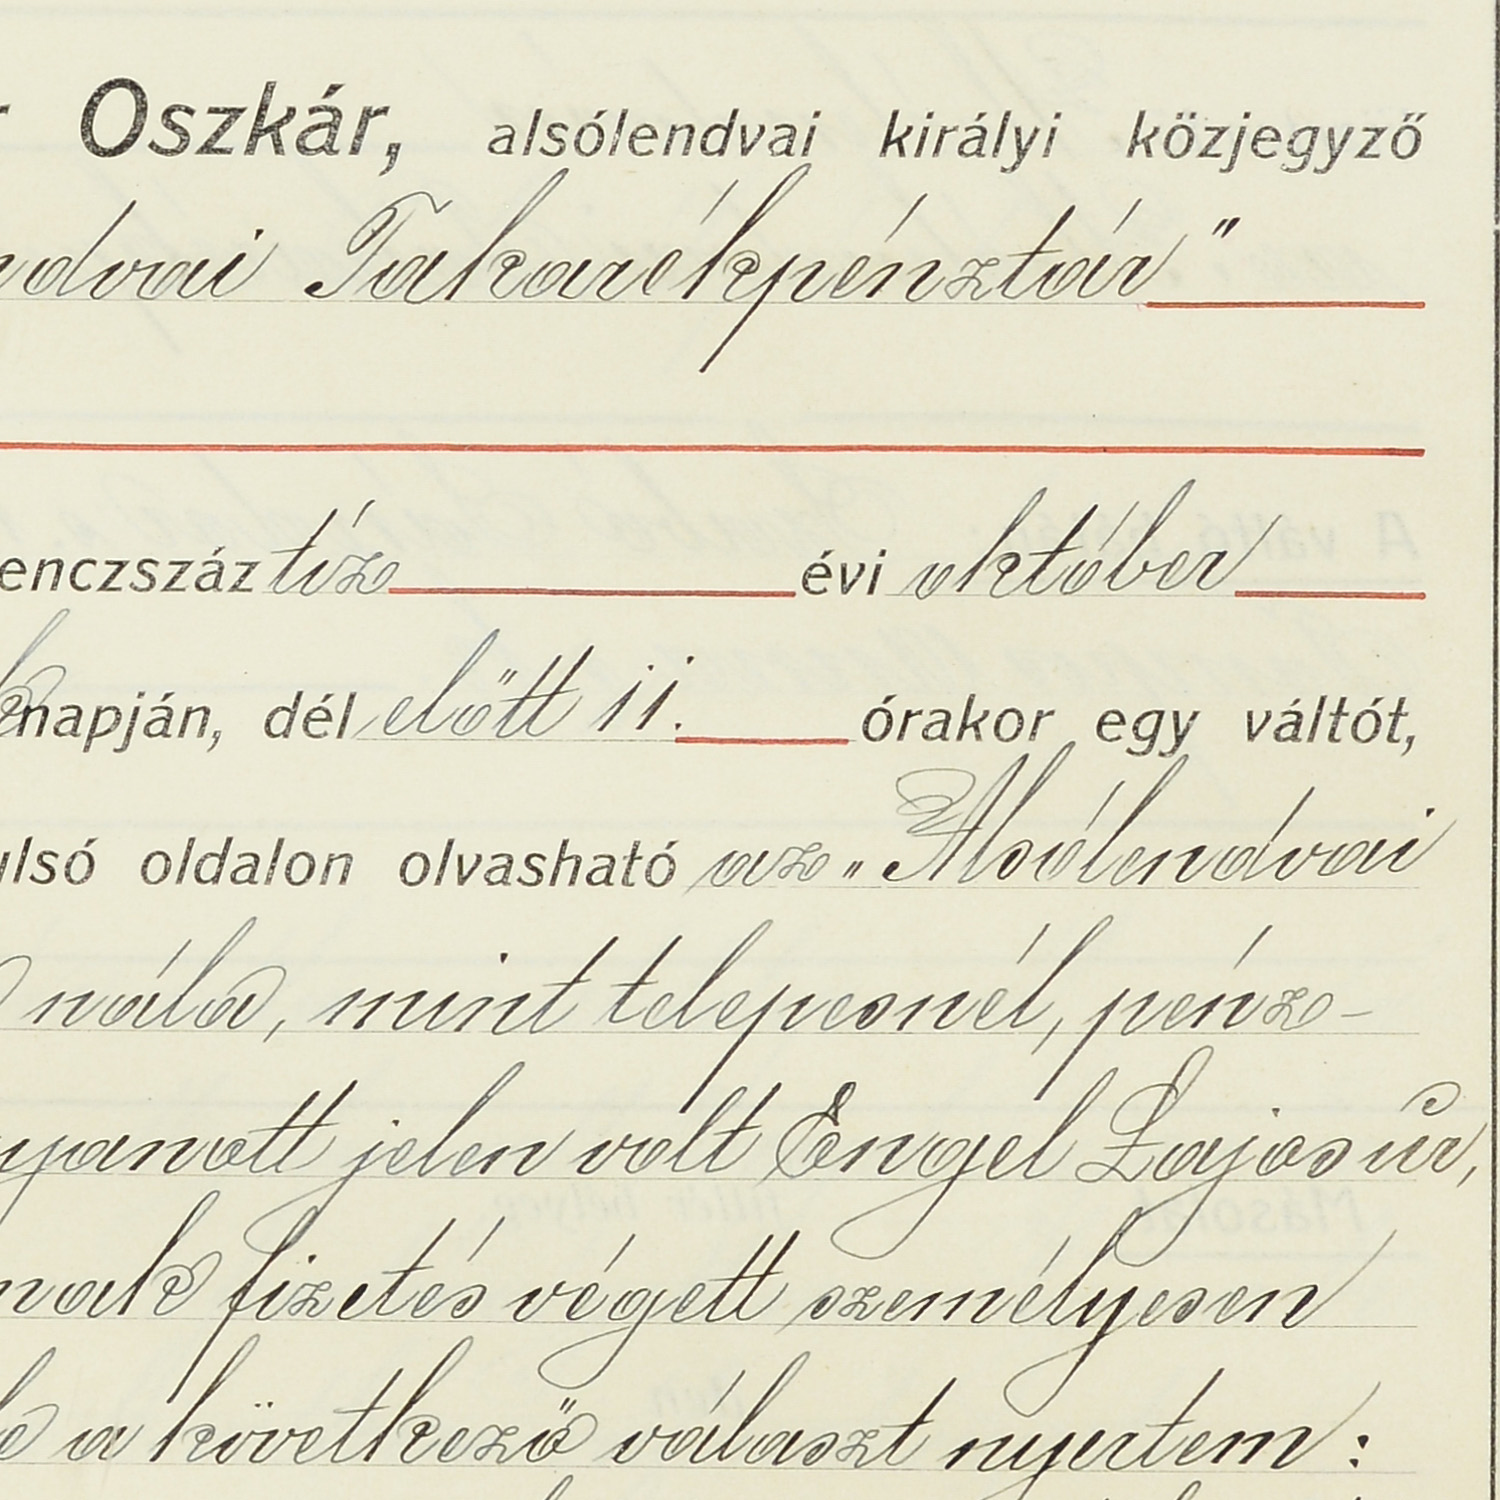 Oszkár, alsólendvai királyi közjegyző
ndvai Takarékpénztár"
enczszáz tíz évi október
napján, dél előtt 11. órakor egy váltót,
ulsó oldalon olvasható az „Alsólendvai
nála, mint telepesnél, pénz-
yanott jelen volt Engel Lajos úr,
nak fizetés végett személyesen
a következő választ nyertem: